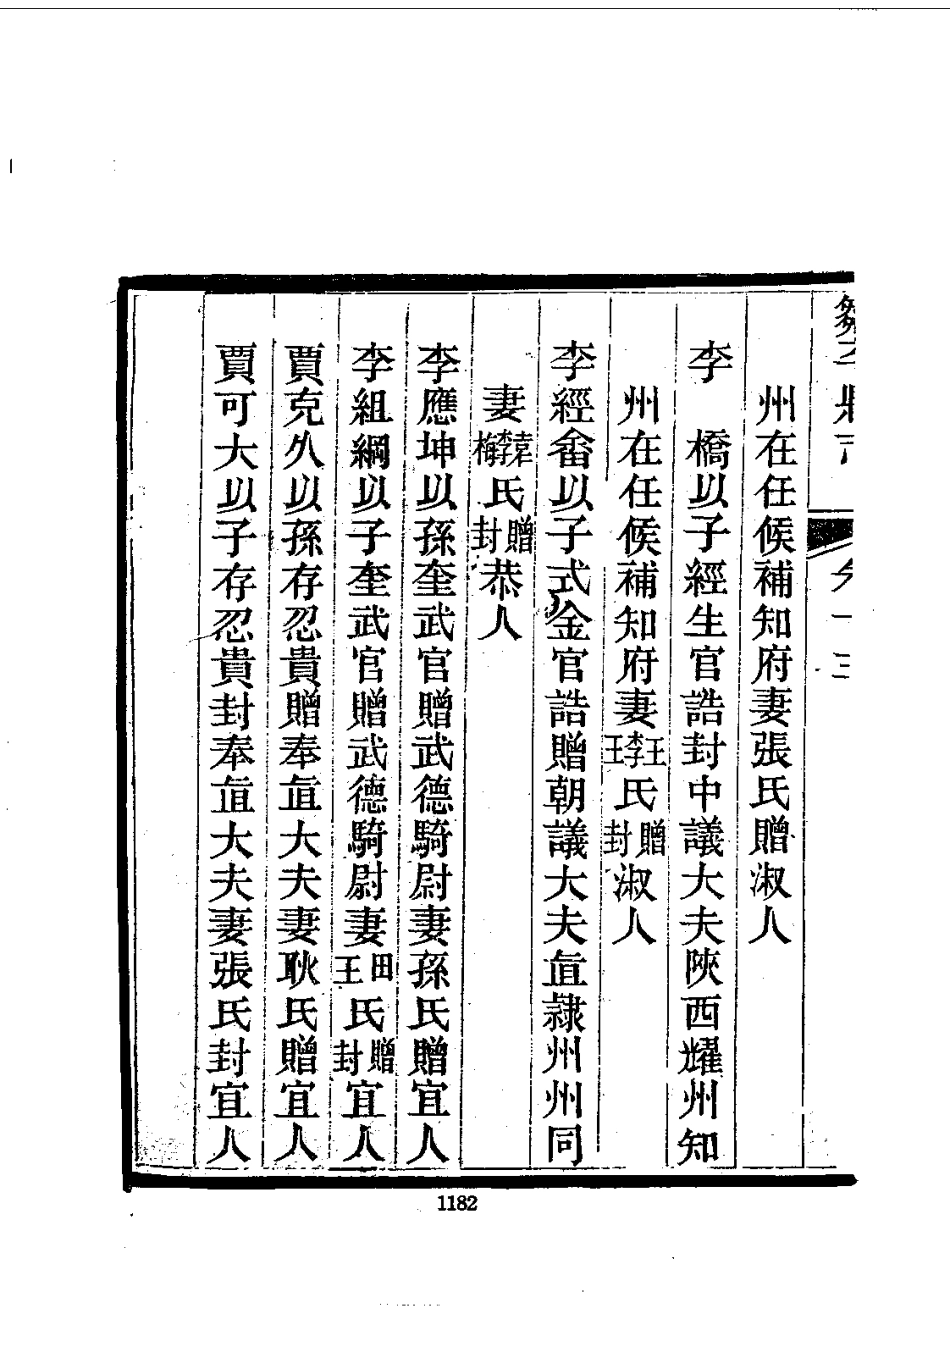 州在任候補知府妻張氏贈淑人
李　橋以子經生官誥封中議大夫陝西耀州知
州在任候補知府妻王李王氏贈封淑人
李經畬以子式金官誥贈朝議大夫直隸州州同
妻袁李梅氏贈封恭人
李應坤以孫奎武官贈武德騎尉妻孫氏贈宜人
李組綱以子奎武官贈武德騎尉妻田王氏贈封宜人
賈克久以孫存忍貴贈奉直大夫妻耿氏贈宜人
賈可大以子存忍貴封奉直大夫妻張氏封宜人
1182